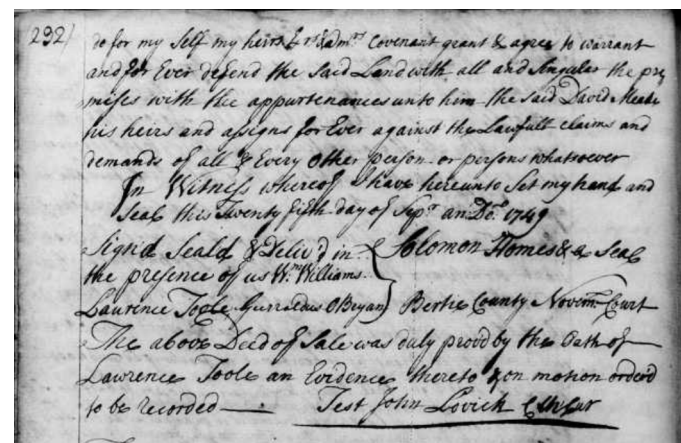 292)
do for my Self my heirs Exrs & admrs Covenant grant & agree to warrant
and for Ever defend the Said Land with all and Singular the pre
mises with the appurtenances unto him the Said David Meade
his heirs and assigns for Ever against the Lawfull claims and
demands of all & Every other person or persons whatsoever
In Witness whereof I have hereunto Set my hand and
Seal this Twenty fifth day of Sepr an Do. 1749
Signd Seald & Deliv'd in Solomon Homes & a Seal
the presence of us Wm. Williams
Laurence Toole Gurraldus OBryan Bertie County Novemr. Court
The above Deed of Sale was duly provd by the Oath of
Lawrence Toole an Evidence thereto & on motion orderd
to be recorded Test John Lovick